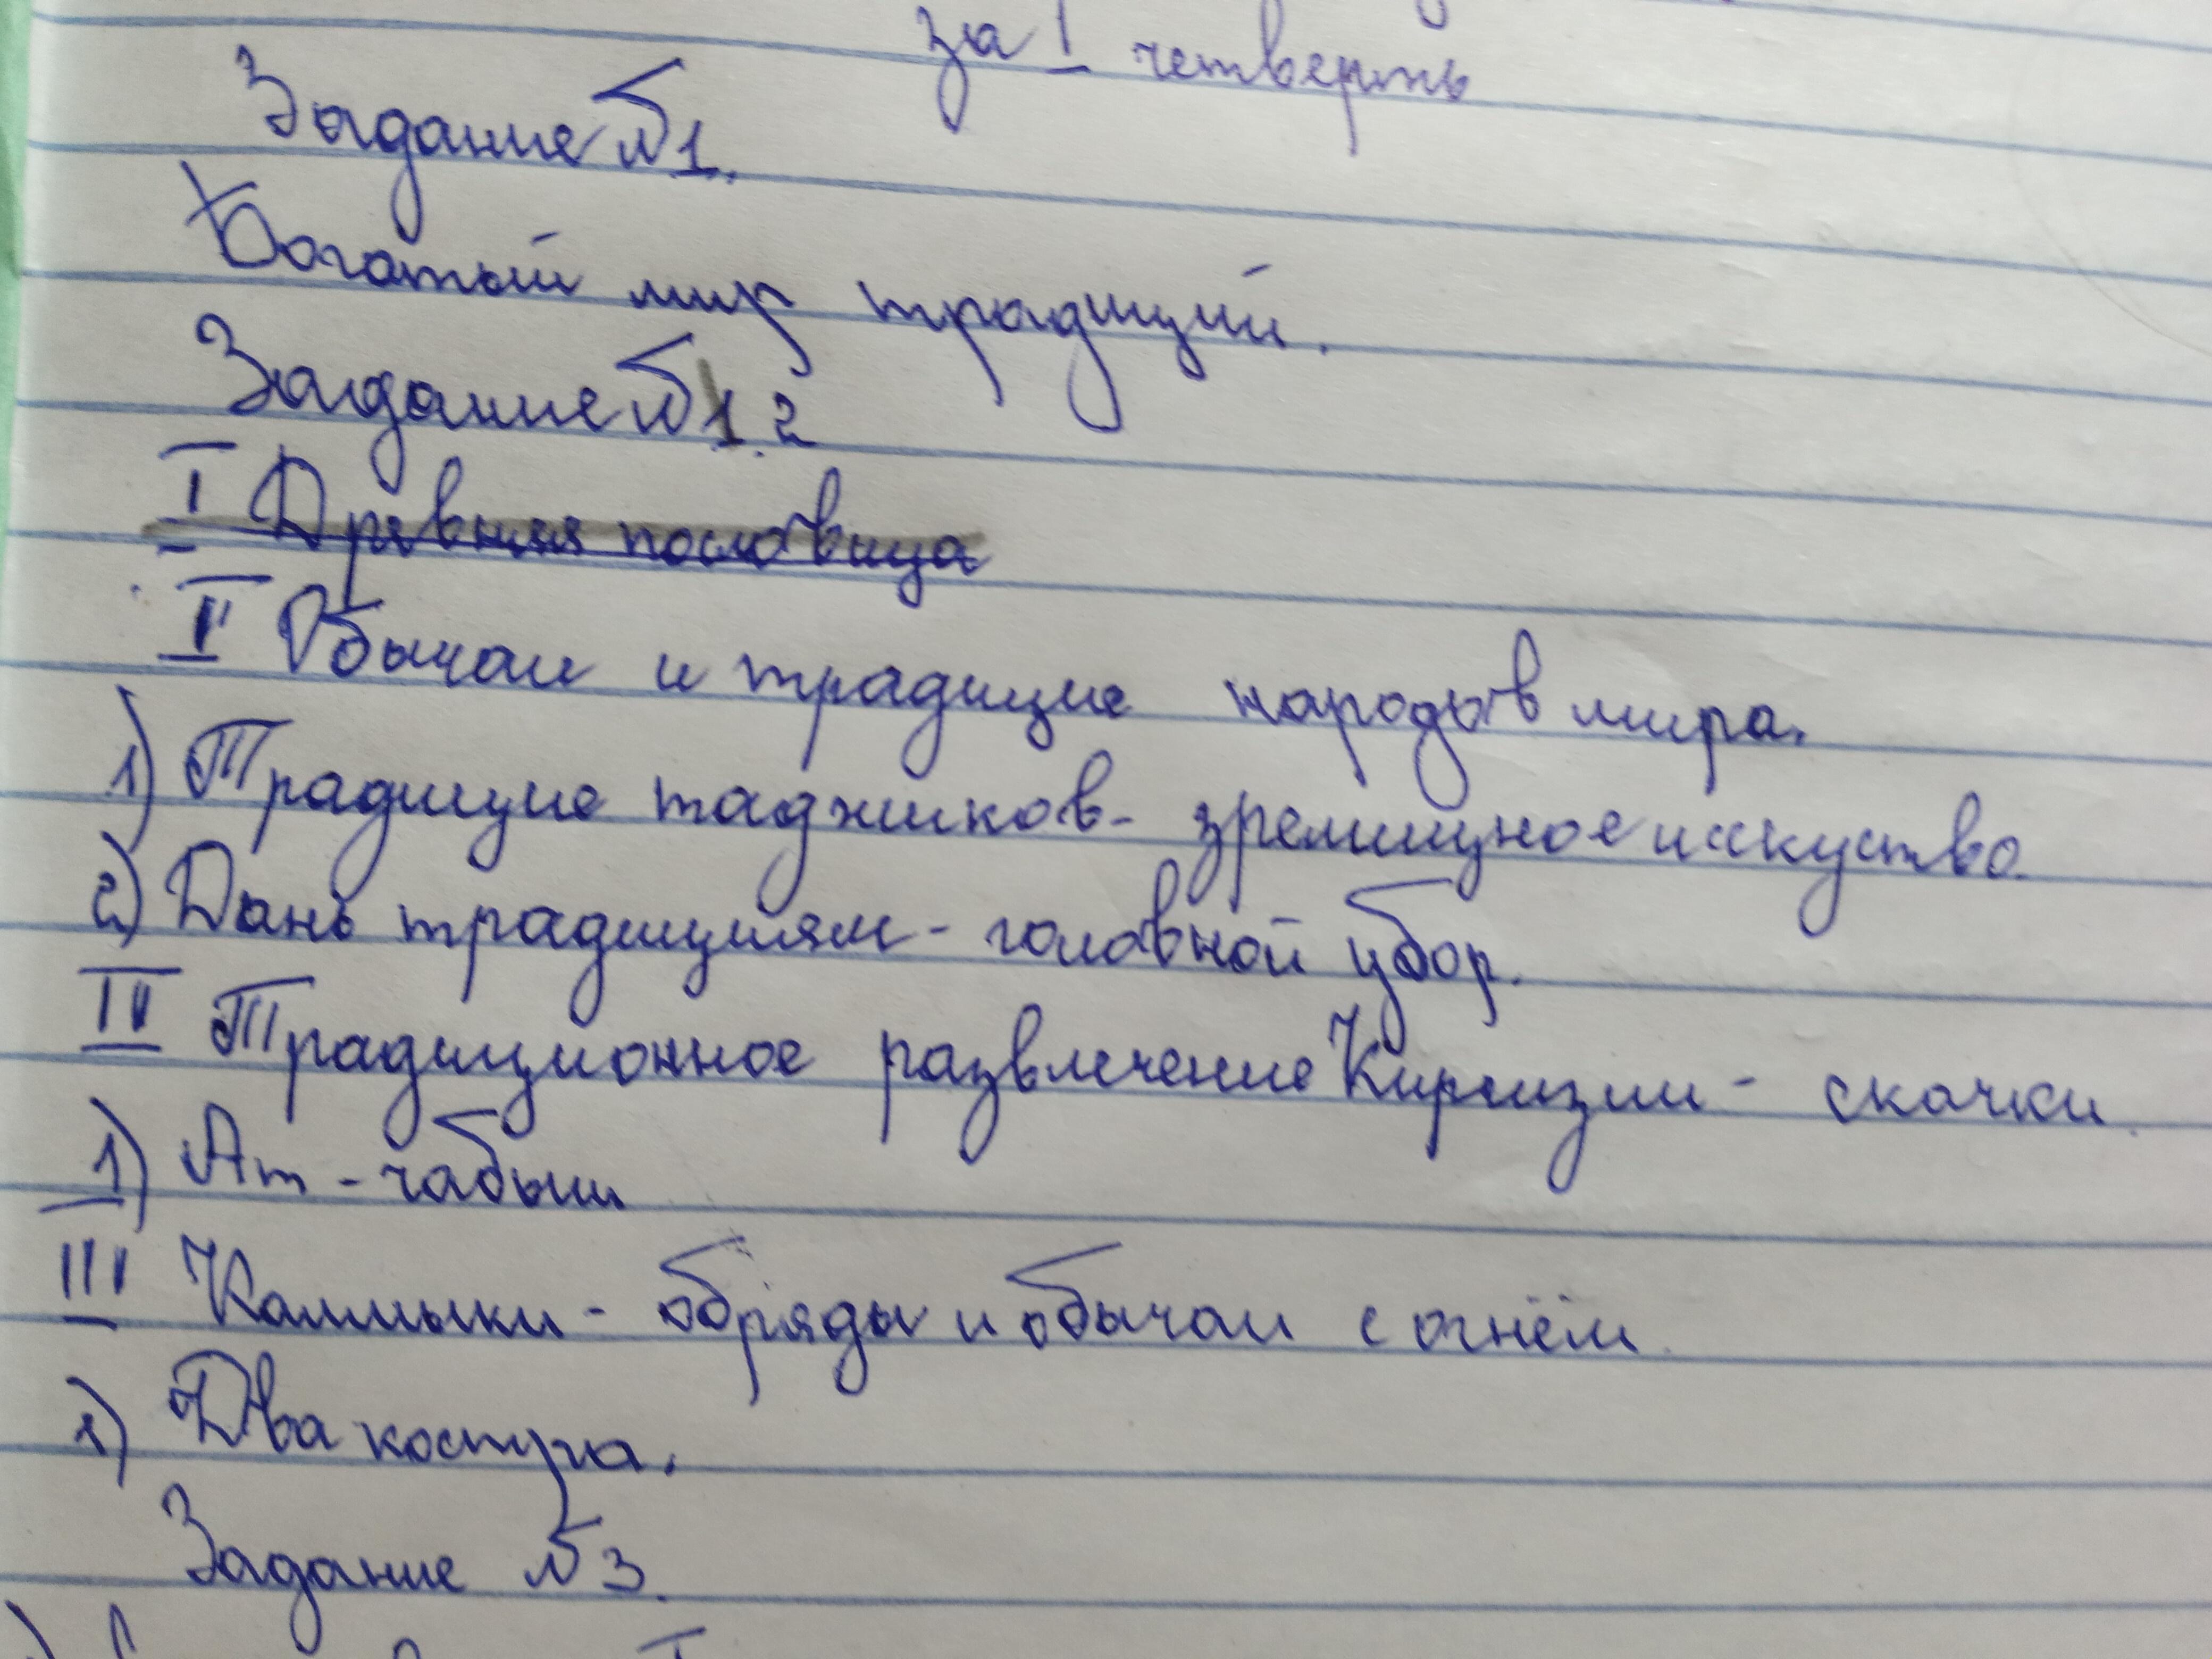 за I четверть
Задание №1.
Богатый мир традиций.
Задание №1.2
I Древняя пословица
I Обычаи и традицие народов мира.
1) Традицие таджиков - зрелищное исскуство.
2) Дань традициям - головной убор.
II Традиционное развлечение Киргизии - скачки.
1) Ат - чабыш
III Калмыки - обряды и обычаи с огнём.
1) Два костра.
Задание №3.